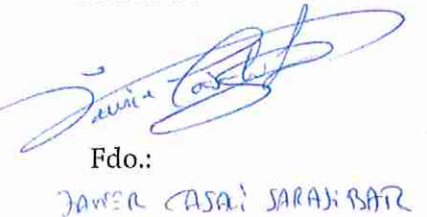 Fdo.:
JAVIER CASALÍ SARASIBAR